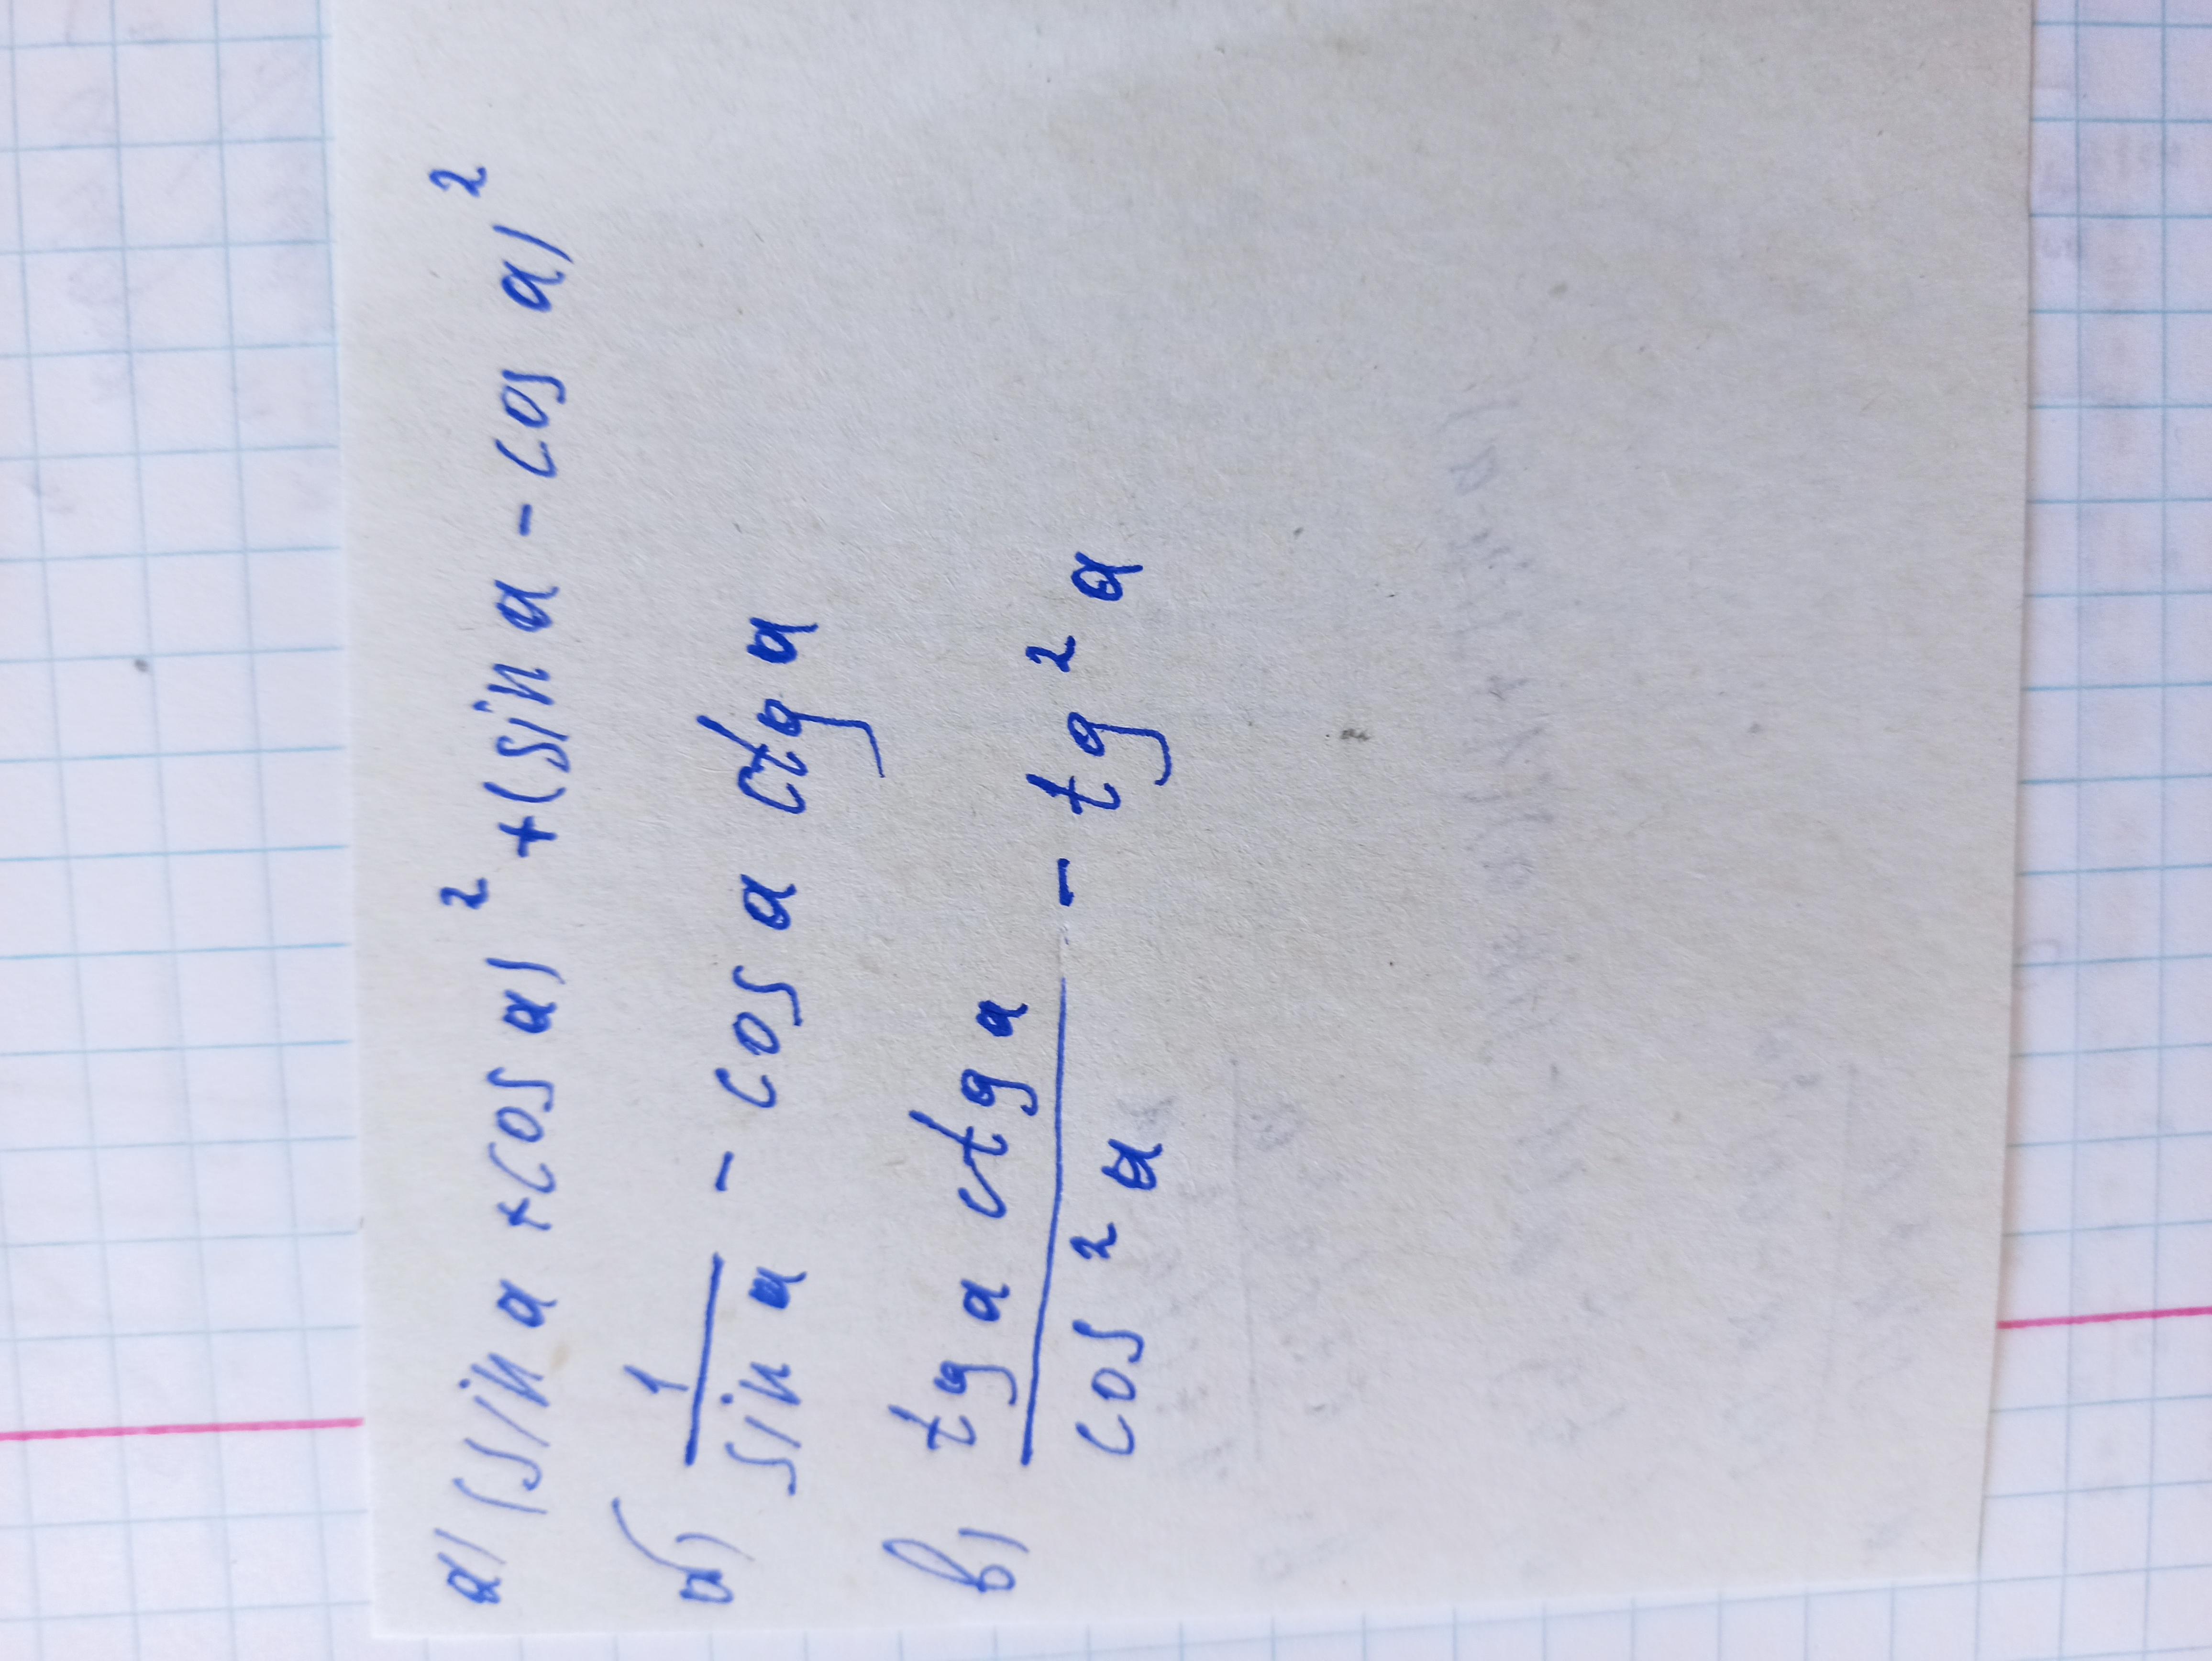 а) (sin a + cos a)² + (sin a - cos a)²
б) 1/sin a - cos a ctg a
в) tg a ctg a/cos² a - tg² a